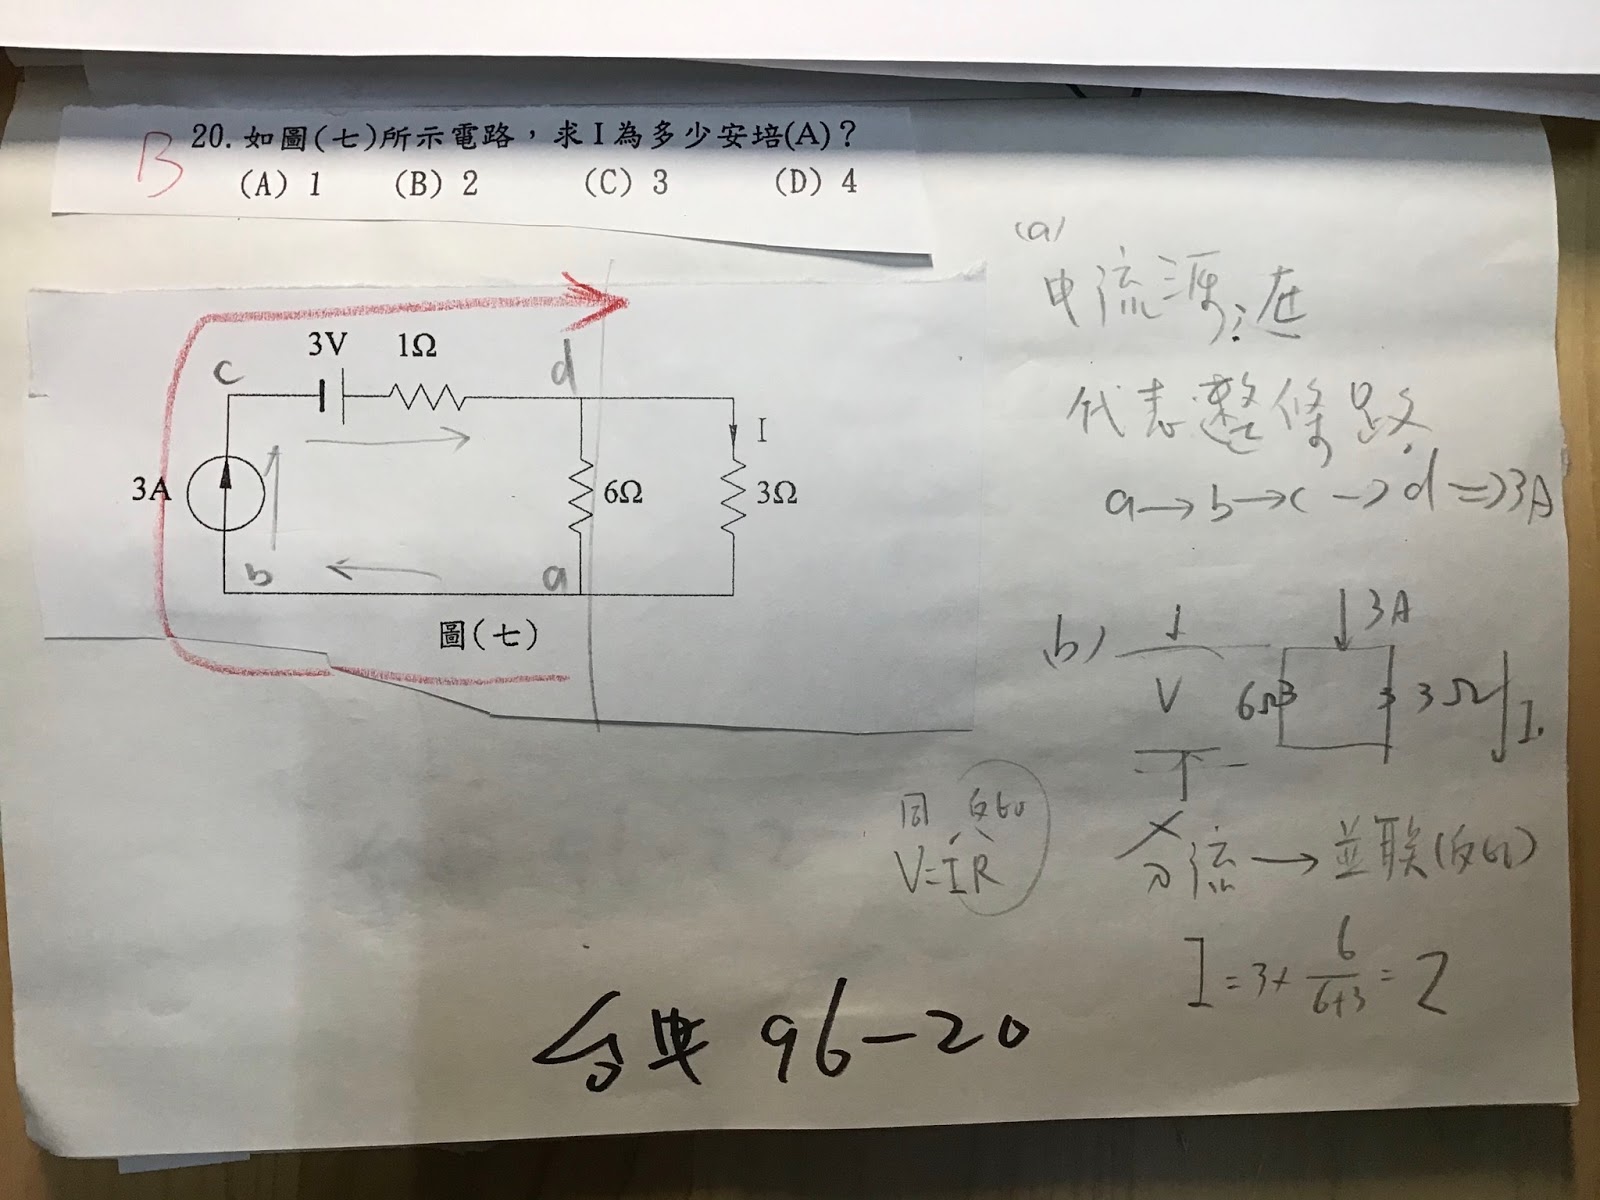 B
20. 如圖(七)所示電路，求I為多少安培(A)？
(A) 1 (B) 2 (C) 3 (D) 4
3V 1Ω
c
d
I
3A
6Ω
3Ω
b
a
圖(七)
(a)
电流源;在
代表整條路
a→b→c→d⇒3A
b)
3A
V
6Ω
3Ω
I
同 反比
V=IR
分流→並联(反比)
I=3×6/(6+3)=2
96-20